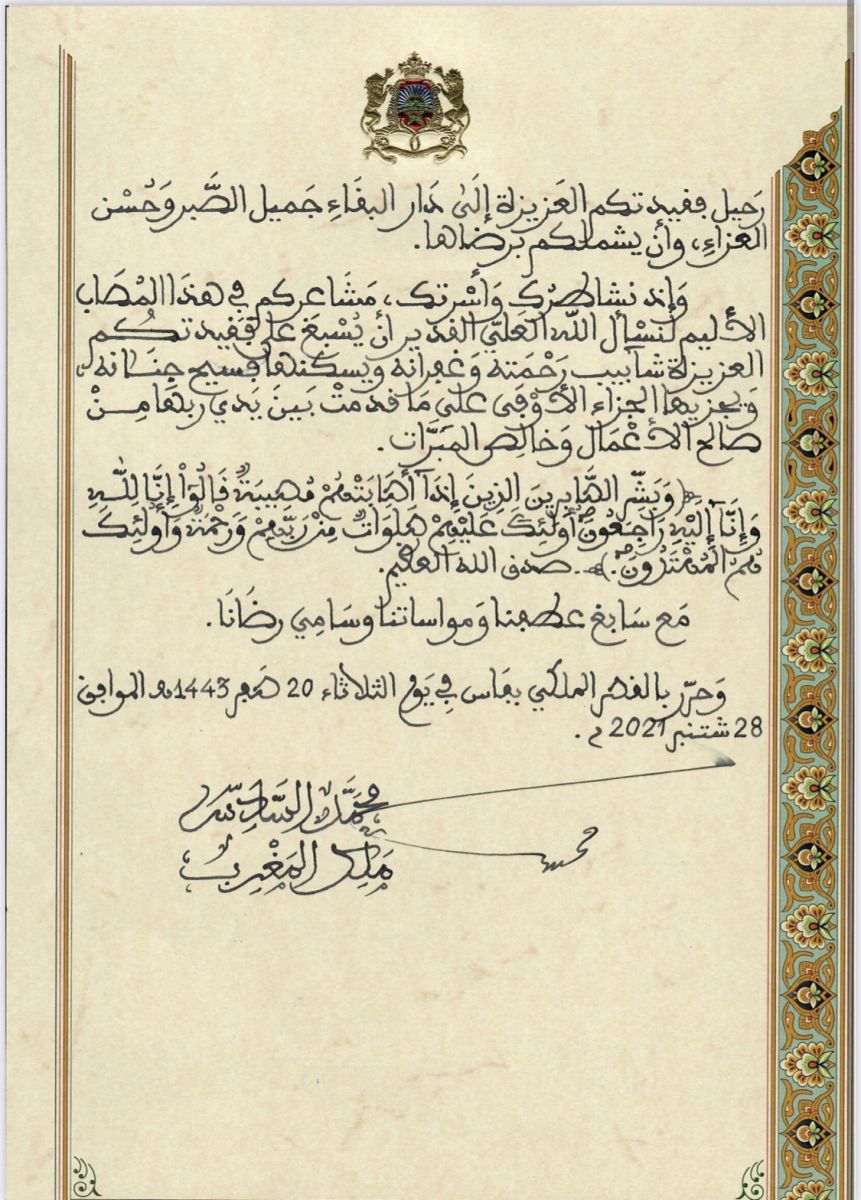 رَحيل فقيدتكم العَزيزة إلَىٰ دَار البقَاءِ جَميل الصَّبر وَحُسْن
العزاءِ، وأن يشملكم برضاها.
وَإذ نشاطرُك وَأسْرتك، مَشَاعركم في هذَا المْصَاب
الأليم لنَسْأل اللّه العَليّ القدير أنْ يُسْبغَ على فقيدتكُم
العزيزة شآبيب رَحْمَته وَغفرانه ويسكنها فسيح جنَانه،
وَيجزيها الجزاء الأوْفَى على مَا قدمتْ بَينَ يَدي ربهَا مِنْ
صالح الأعْمَال وَخَالِص المَبَرَّات.
﴿وَبَشِّر الصَّابرينَ الذِينَ إذَآ أصَابَتْهُمْ مُصِيبَةٌ قَالُوٓاْ إنَّا لِلّهِ
وَإنَّآ إلَيْهِ رَاجِعُونَۖ أُولَٰئِكَ عَلَيْهِمْ صَلَوَاتٌ مِنْ رَبِّهِمْ وَرَحْمَةٌ وَأُولَٰئِكَ
هُمُ المُهْتَدُونَۖ.﴾. صدق الله العظيم.
مَع سَابغ عطفنا وَمواساتنا وسَامِي رضَانَا.
وَحرّر بالقصر الملكي بفاس فِي يَوم الثلاثاء 20 صَفر 1443هـ الموافق
28 شتنبر 2021 م.
محمَّد السَّادِسُ
مَلِك المَغْرِب